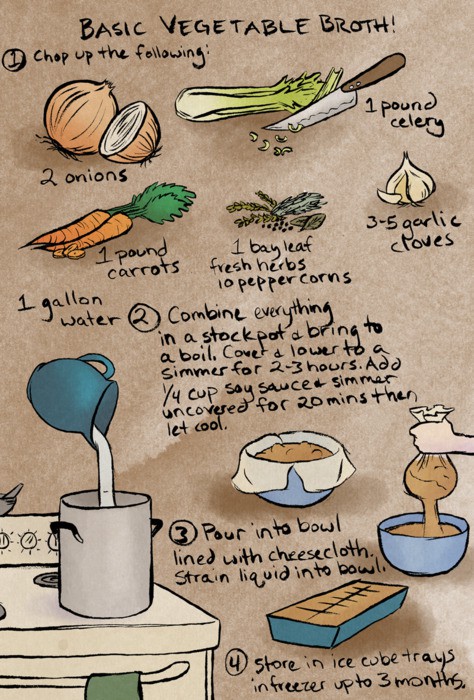 BASIC VEGETABLE BROTH!
1 Chop up the following:
2 onions
1 pound
celery
1 pound
carrots
1 bay leaf
fresh herbs
10 peppercorns
3-5 garlic
cloves
1 gallon
water
2 Combine everything
in a stockpot & bring to
a boil. Cover & lower to a
simmer for 2-3 hours. Add
1/4 cup soy sauce & simmer
uncovered for 20 mins then
let cool.
3 Pour into bowl
lined with cheesecloth.
Strain liquid into bowl.
4 Store in ice cube trays
in freezer up to 3 months.